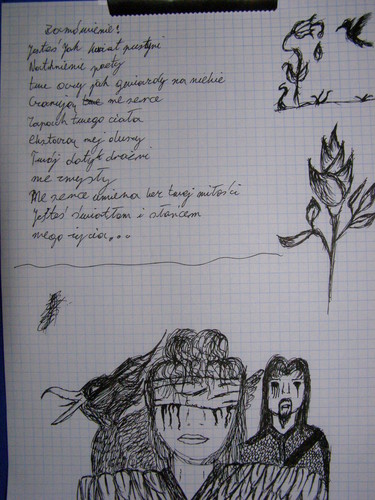 Zaomówienie!
Jesteś jak kwiat pustyni
Nathnienie poety
twe oczy jak gwiazdy na niebie
Czarują me serce
Zapach twego ciała
Ekstazą mej duszy
Twój dotyk drażni
me zmysły
Me serce umiera bez twej miłości
Jesteś światłem i słońcem
mego życia...